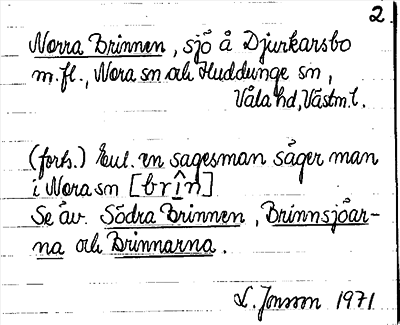 2
Norra Brinnen, sjö å Djurkarsbo
m.fl., Nora sn och Huddunge sn,
Våla hd, Västm.l.
(forts.) Enl. en sagesman säger man
i Nora sn [brîn]
Se äv. Södra Brinnen, Brinnsjöar-
na och Brinnarna.
L. Jonsson 1971